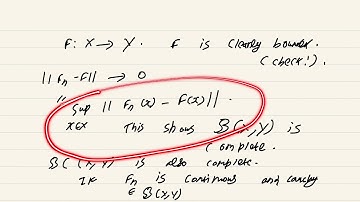 F: X → Y. F is clearly bounded.
(check!).
|| Fn - F|| → 0
"
Sup || Fn(x) - F(x)||.
x∈X This shows B(X,Y) is
Complete.
B( (X,Y) is also complete.
If Fn is continuous and cauchy
∈ B(X,Y)